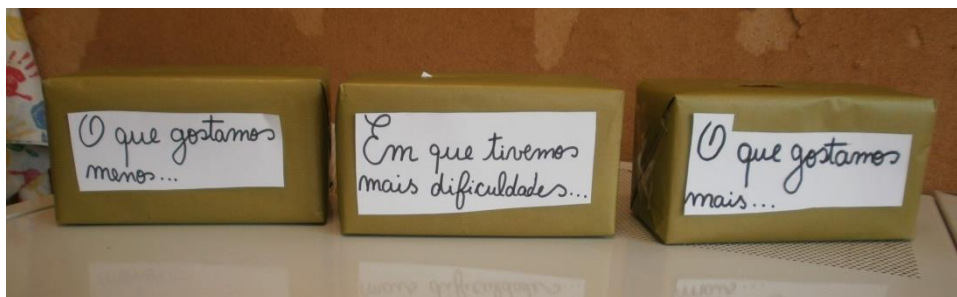 O que gostamos
menos...
Em que tivemos
mais dificuldades...
O que gostamos
mais...